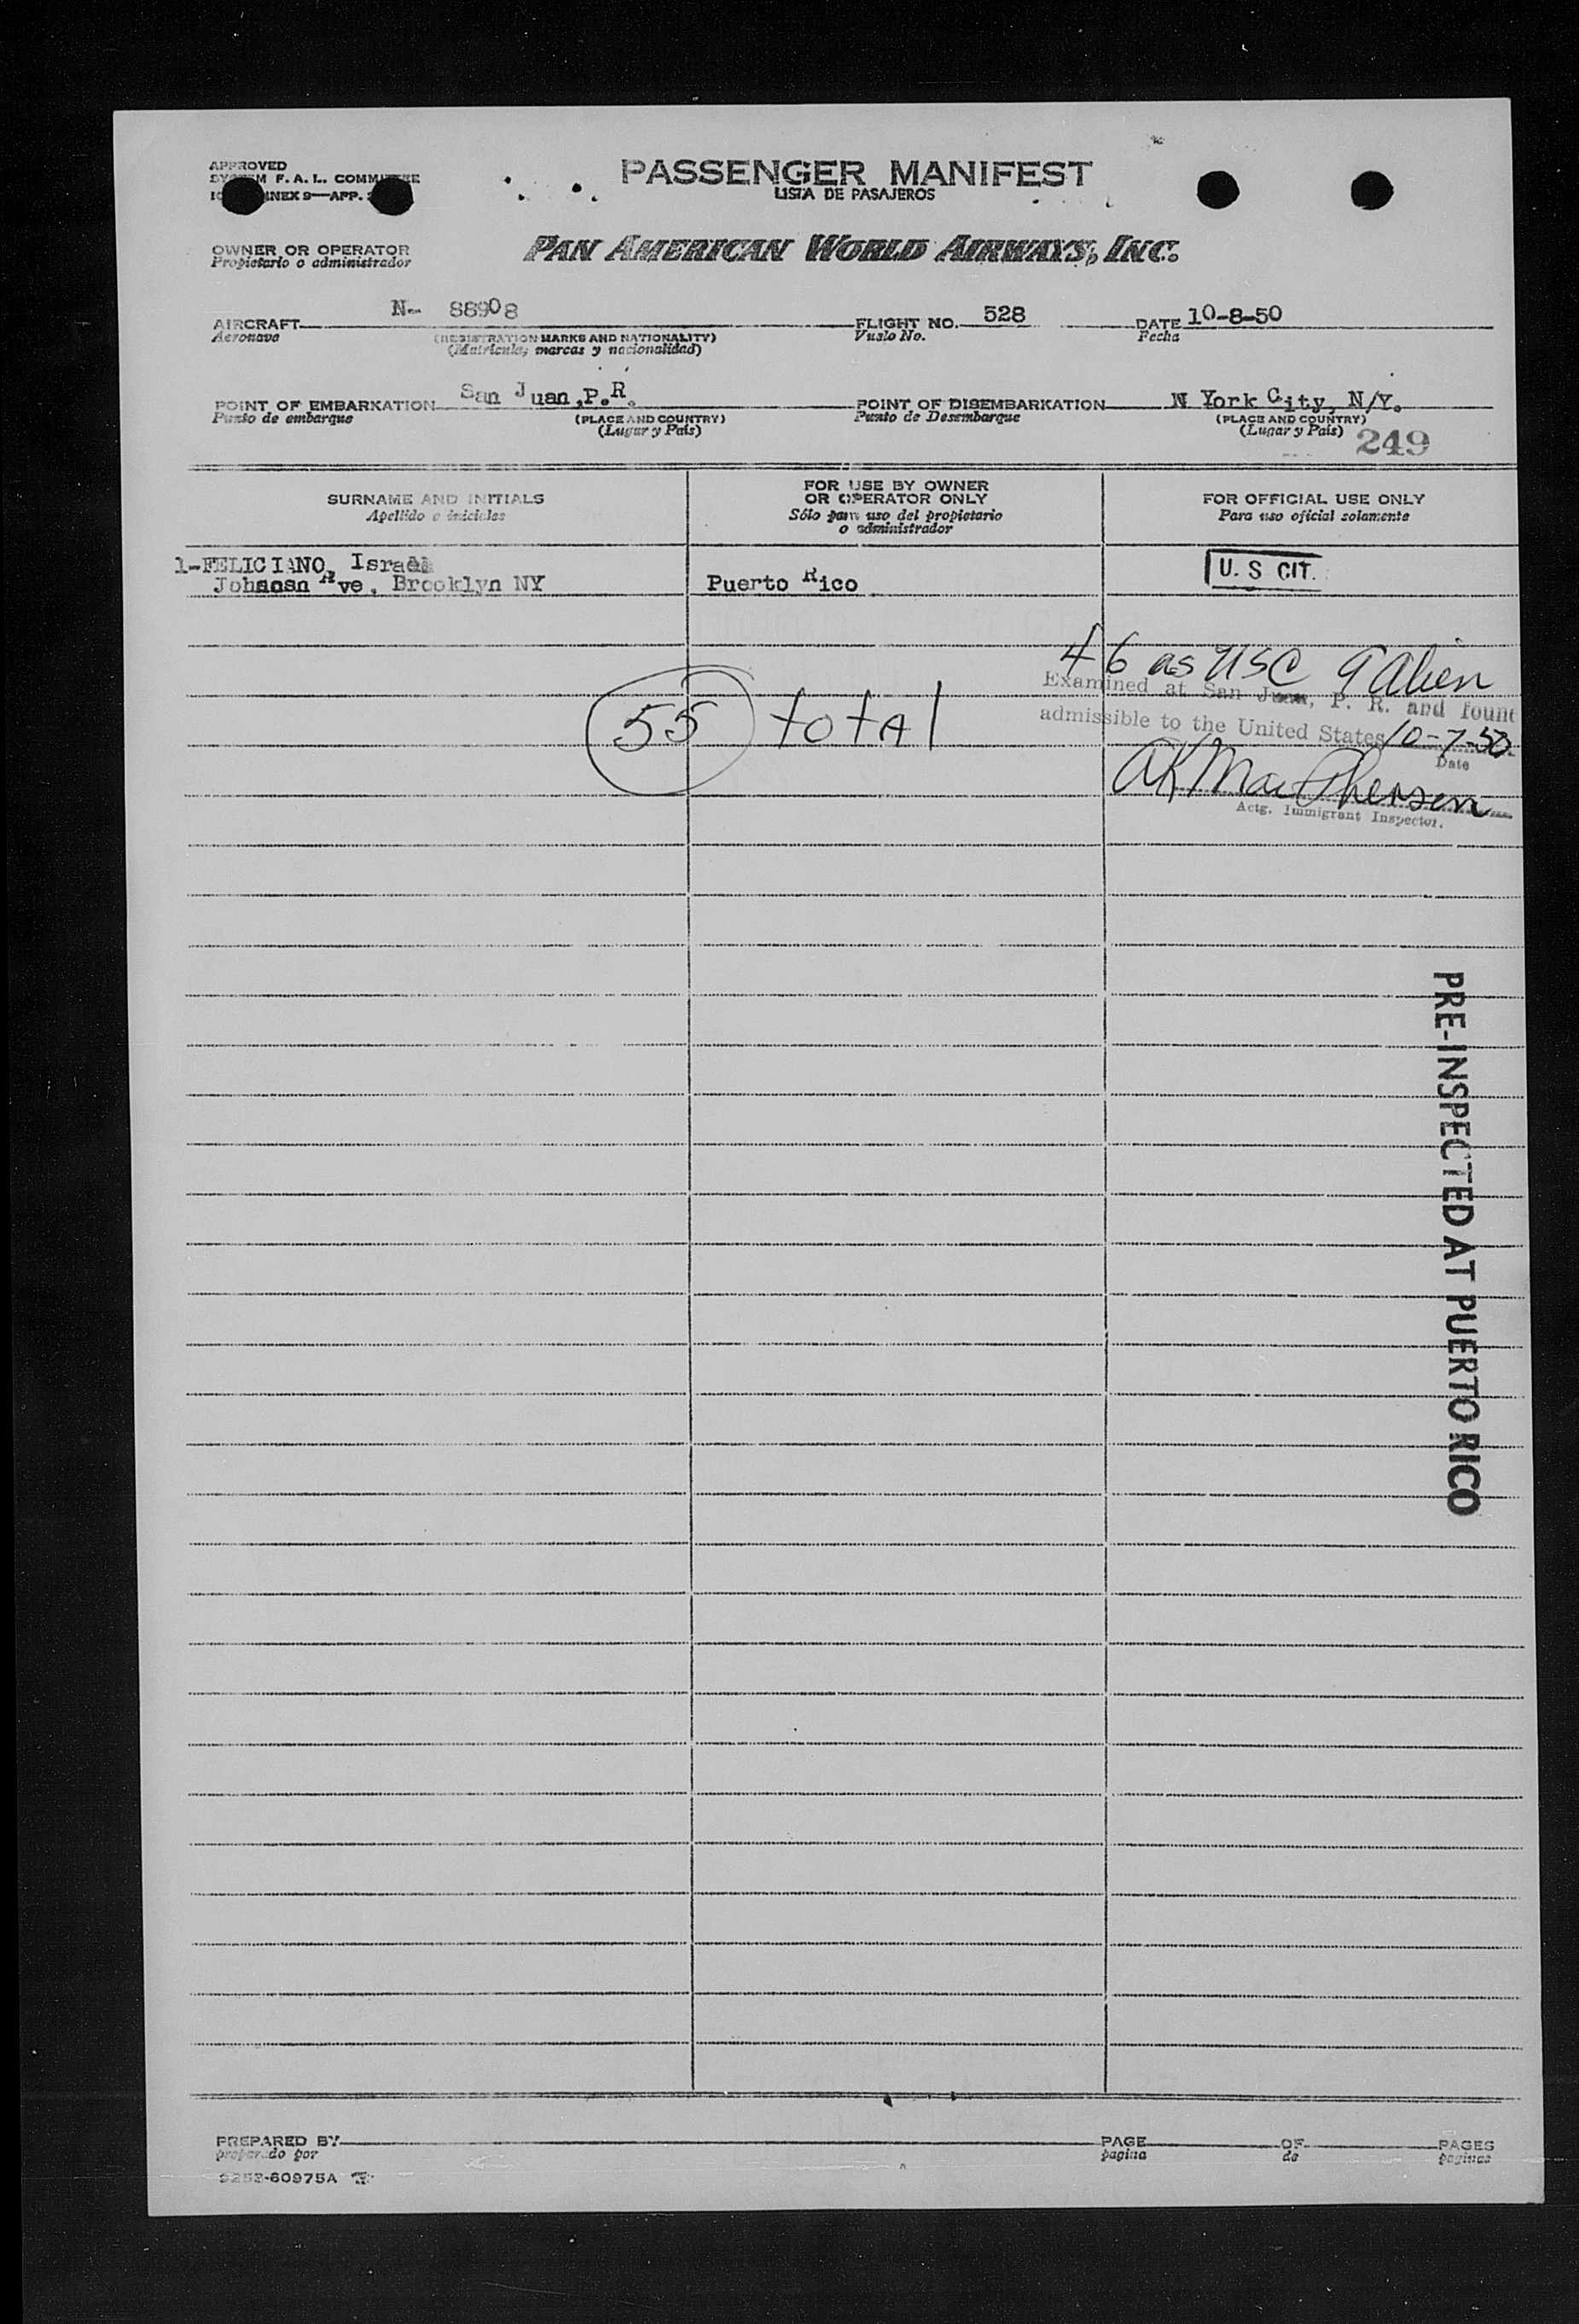 APPROVED
SYSTEM F. A. L. COMMITTEE
ANNEX 9—APP.
PASSENGER MANIFEST
LISTA DE PASAJEROS
OWNER OR OPERATOR
Propietario o administrador
PAN AMERICAN WORLD AIRWAYS, INC.
AIRCRAFT N- 88908 FLIGHT NO. 528 DATE 10-8-50
Aeronave (REGISTRATION MARKS AND NATIONALITY) Vuelo No. Fecha
(Matricula, marcas y nacionalidad)
POINT OF EMBARKATION San Juan, P.R. POINT OF DISEMBARKATION N York City, N/Y.
Punto de embarque (PLACE AND COUNTRY) Punto de Desembarque (PLACE AND COUNTRY)
(Lugar y País) (Lugar y País) 249
SURNAME AND INITIALS
Apellido e iniciales
FOR USE BY OWNER
OR OPERATOR ONLY
Sólo para uso del propietario
o administrador
FOR OFFICIAL USE ONLY
Para uso oficial solamente
1-FELICIANO, Israel
Ave, Brooklyn NY Puerto Rico U. S CIT.
46 as USC 9 Alien
Examined at San Juan, P. R. and found
55 total
admissible to the United States 10-7-50
Date
AK MacPherson
Actg. Immigrant Inspector.
PRE-INSPECTED AT PUERTO RICO
PREPARED BY PAGE OF PAGES
preparado por pagina de paginas
60975A